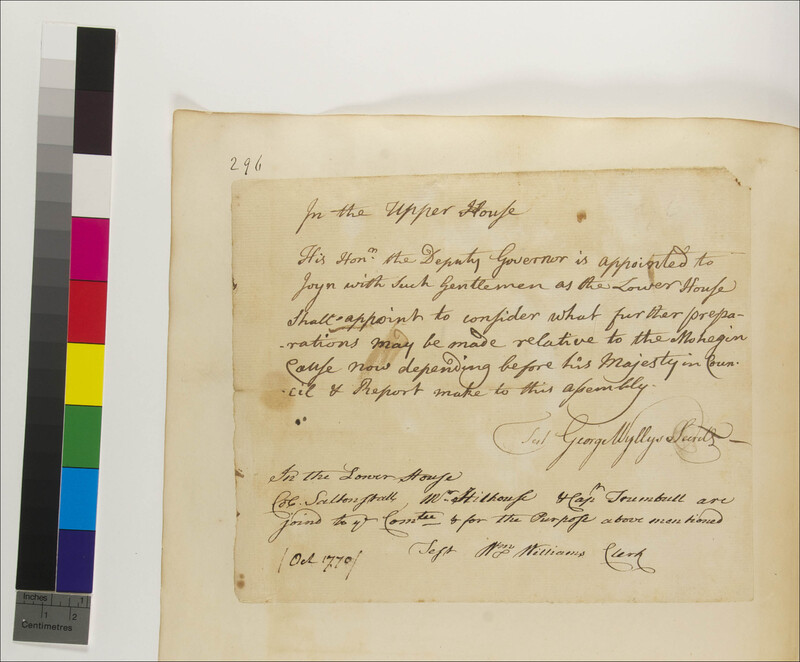 296
In the Upper House
His Honr. the Deputy Governor is appointed to
Joyn with Such Gentlemen as the Lower House
Shall appoint to consider what further prepa-
-rations may be made relative to the Mohegin
Cause now depending before his Majesty in Coun-
-cil & Report make to this assembly.
Test George Wyllys Secretr
In the Lower House
Col. Saltonstall, Mr. Hilhouse & Capt Trumbull are
joind to ye Comtee & for the Purpose above mentioned
Test Wm Williams Clerk
[Oct 1770]
Inches 1
1 2
Centimetres